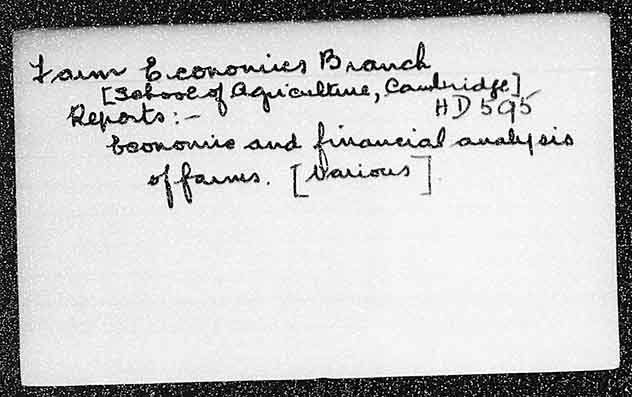 Farm Economics Branch
[School of Agriculture, Cambridge]
Reports:- HD595
Economic and financial analysis
of farms. [Various]